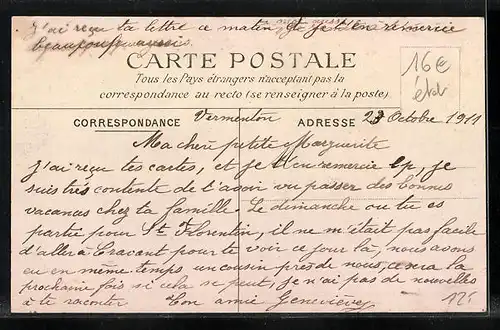 J'ai reçu ta lettre ce matin et je t'en remercie
beaucoup aussi
CARTE POSTALE
Tous les Pays étrangers n'acceptant pas la
correspondance au recto (se renseigner à la poste)
16€
état
CORRESPONDANCE Vermenton ADRESSE 23 Octobre 1911
Ma chère petite Marguerite
J'ai reçu tes cartes, et je t'en remercie bp, je
suis très contente de t'avoir vu passer des bonnes
vacances chez ta famille. Le dimanche ou tu es
partie pour St Florentin, il ne m'était pas facile
d'aller à Cravant pour te voir ce jour là, nous avons
eu en même temps un cousin près de nous, ce sera la
prochaine fois si cela se peut, je n'ai pas de nouvelles
à te raconter Ton amie Geneviève